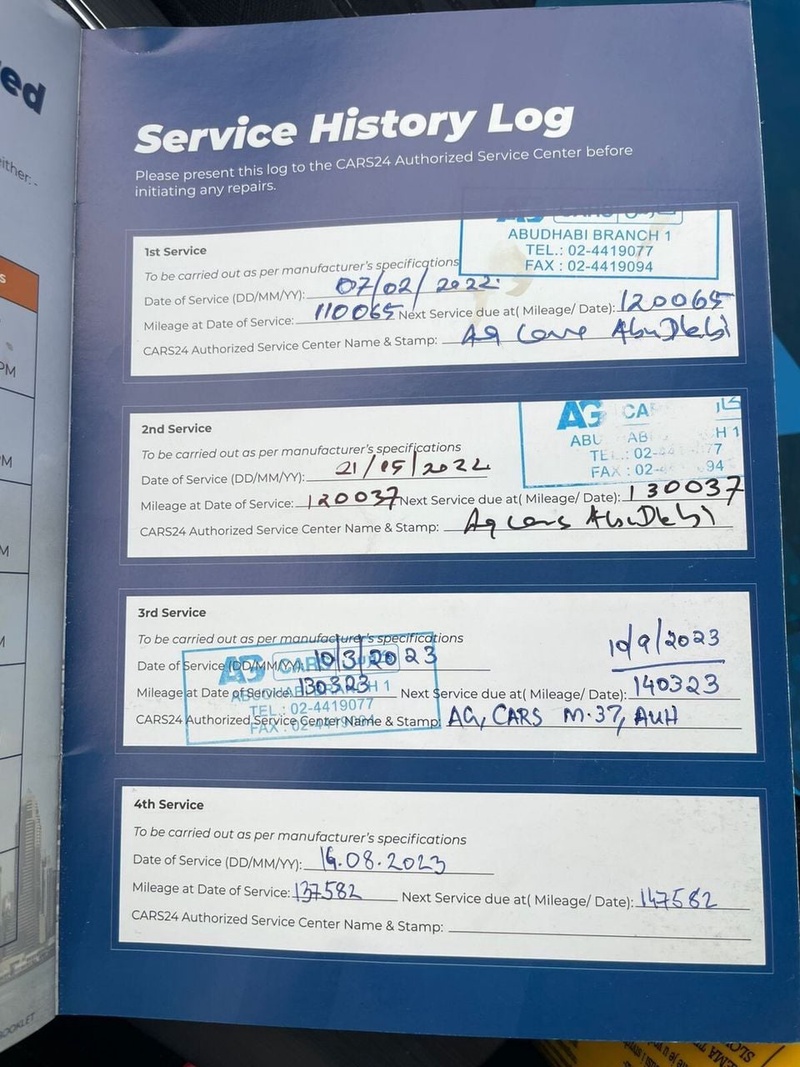 ed
either: -
s
PM
PM
M
M
BOOKLET
Service History Log
Please present this log to the CARS24 Authorized Service Center before
initiating any repairs.
ABUDHABI BRANCH 1
TEL.: 02-4419077
FAX : 02-4419094
1st Service
To be carried out as per manufacturer's specifications
Date of Service (DD/MM/YY): 07/02/2022
Mileage at Date of Service: 110065 Next Service due at( Mileage/ Date): 120065
CARS24 Authorized Service Center Name & Stamp: AG Cars AbuDhabi
AG CA
ABU AB H 1
TE .: 02-44 77
FAX : 02-4 94
2nd Service
To be carried out as per manufacturer's specifications
Date of Service (DD/MM/YY): 21/05/2022
Mileage at Date of Service: 120037 Next Service due at( Mileage/ Date): 130037
CARS24 Authorized Service Center Name & Stamp: Ag cars AbuDhabi
3rd Service
To be carried out as per manufacturer's specifications
10/9/2023
Date of Service (DD/MM/YY): 10/3/2023
Mileage at Date of Service: 130323 Next Service due at( Mileage/ Date): 140323
CARS24 Authorized Service Center Name & Stamp: AG, CARS M.37, AUH
AG CARS
H 1
TEL.: 02-4419077
FAX : 02-4419094
4th Service
To be carried out as per manufacturer's specifications
Date of Service (DD/MM/YY): .08.2023
Mileage at Date of Service: 137582 Next Service due at( Mileage/ Date): 147582
CARS24 Authorized Service Center Name & Stamp: